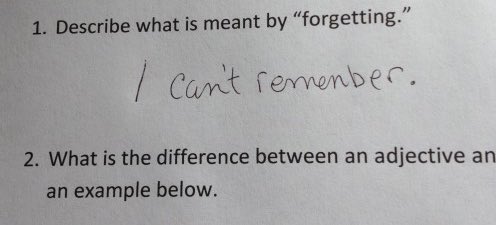 1. Describe what is meant by “forgetting.”
I can't remenber.
2. What is the difference between an adjective an
an example below.